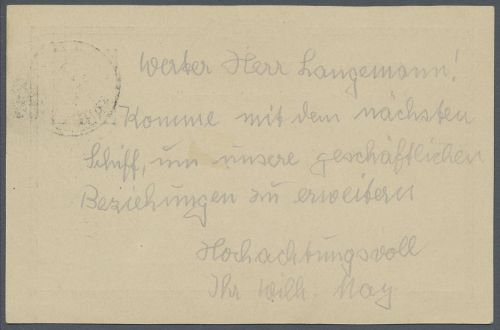 Werter Herr Langemann!
Komme mit dem nächsten
Schiff, um unsere geschäftlichen
Beziehungen zu erweitern
Hochachtungsvoll
Ihr Wilh. May